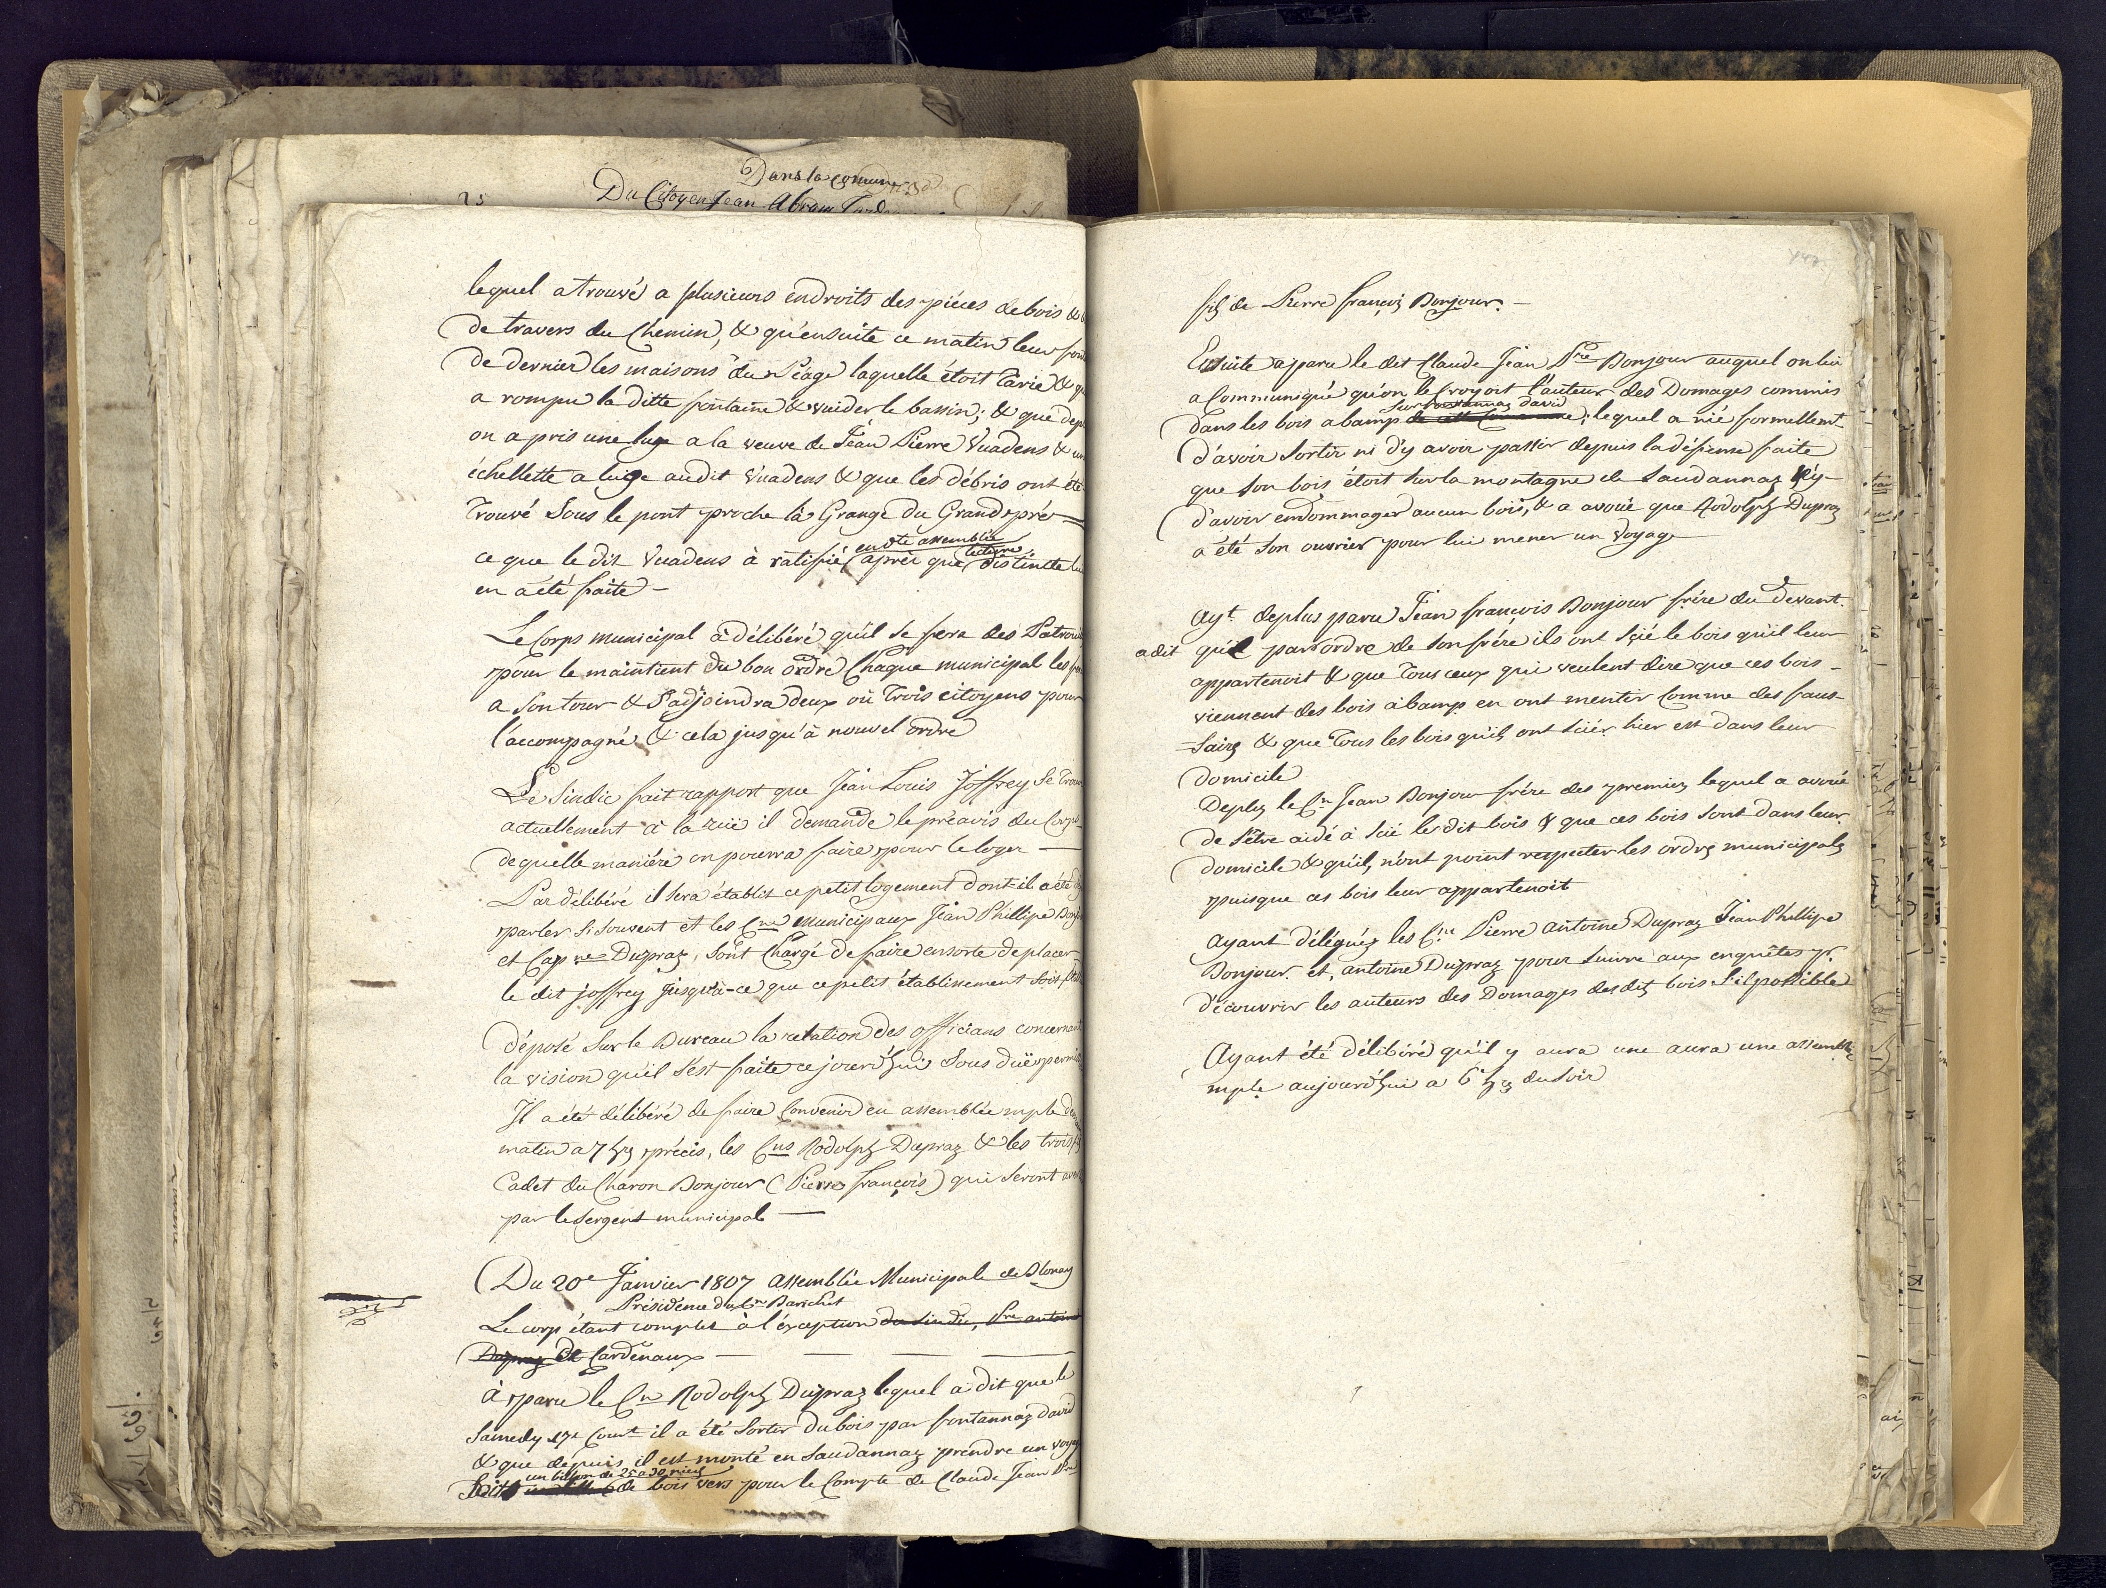 Dans la comune
Du Citoyen Jean Abram
25
lequel a trouvé a plusieurs endroits des piéces de bois &
de travers du Chemin, & qu'ensuite ce matin leur
de dernier les maisons du Péage laquelle étoit tarie &
a rompu la ditte fontaine & vuider le bassin; & que
on a pris une luge a la veuve de Jean Pierre Vuadens &
échellette a luge audit Vuadens & que les débris ont été
trouvé Sous le pont proche la Grange du Grand pré =
en dte assemblée
ce que le dit Vuadens à ratifié après que lecture distincte
en a été faite —
Le Corps municipal à délibéré qu'il se fera des
pour le maintient du bon ordre Chaque municipal les
a Son tour & S'adjoindra deux où trois citoyens pour
l'accompagné & cela jusqu'à nouvel ordre
Le Sindic fait rapport que Jean Louis Joffrey Se
actuellement à la ruë il demande le préavis du Corps
de quelle maniére on pourra faire pour le loger —
Par délibéré il sera établit ce petit logement dont il a été
parler Si Souvent et les Cns municipaux Jean Phillipe
et Dupraz, Sont Chargé de faire ensorte de placer
le dit Joffrey jusqu'à-ce que ce petit établissement Soit
déposé Sur le Bureau la relation des officians concernant
la vision qu'il S'est faite ce jourd'hui Sous duë
Il a été délibéré de faire Convenir en assemblée mple
matin a 7 hs précis, les Cns Rodolph Dupraz & les trois
Cadet du Charon Bonjour (Pierre François) qui Seront
par le Sergent municipal —
Du 20e Janvier 1807 Assemblée Municipale de Blonay
Présidence du Cn
Le corp étant complet à l'éxception du Sindic, Pre antoine
Dupraz & Cardenaux —
à paru le Cn Rodolph Dupraz lequel a dit que le
Samedy 17e Court il a été Sortir du bois par fontannaz david
& que depuis il est monté en Saudannaz prendre un
un billon de 25 a 30 pieds
de bois vers pour le Compte de Claude Jean Pre
147
fils de Pierre françois Bonjour. —
Ensuite a paru le dit Claude Jean Pre Bonjour auquel on lui
a Communiqué qu'on le Croyoit l'auteur des Domages commis
Sur fontannaz david
dans les bois abamp, lequel a nié formellemt
d'avoir Sortir ni d'y avoir passer depuis la défense faite
que Son bois étoit Sur la montagne de Saudannaz
d'avoir endommager aucun bois, & a avoué que Rodolph Dupraz
a été Son ouvrier pour lui mener un voyage
Ayt deplus paru Jean françois Bonjour frére du devant.
a dit qu'il par ordre de Son frére ils ont Scié le bois qu'il leur
appartenoit & que tous ceux qui veulent dire que ces bois —
viennent des bois abamp en ont mentir Comme des faus-
saires & que tous les bois qu'ils ont Sciér hier est dans leur
domicile
Deplus le Cn Jean Bonjour frére des premiers lequel a avoué
de s'être aidé à Scié les dit bois & que ces bois Sont dans leur
domicile & qu'ils n'ont point respecter les ordres municipals
puisque ces bois leur appartenoit
Ayant déléguéz les Cns Pierre Antoine Dupraz Jean Phillipe
Bonjour et antoine Dupraz pour Suivre aux enquêtes pr
d'écouvrir les auteurs des Domages desdits bois S'il possible
Ayant été délibéré qu'il y aura une aura une assemblée
mple aujourd'hui a 6 hs du Soir